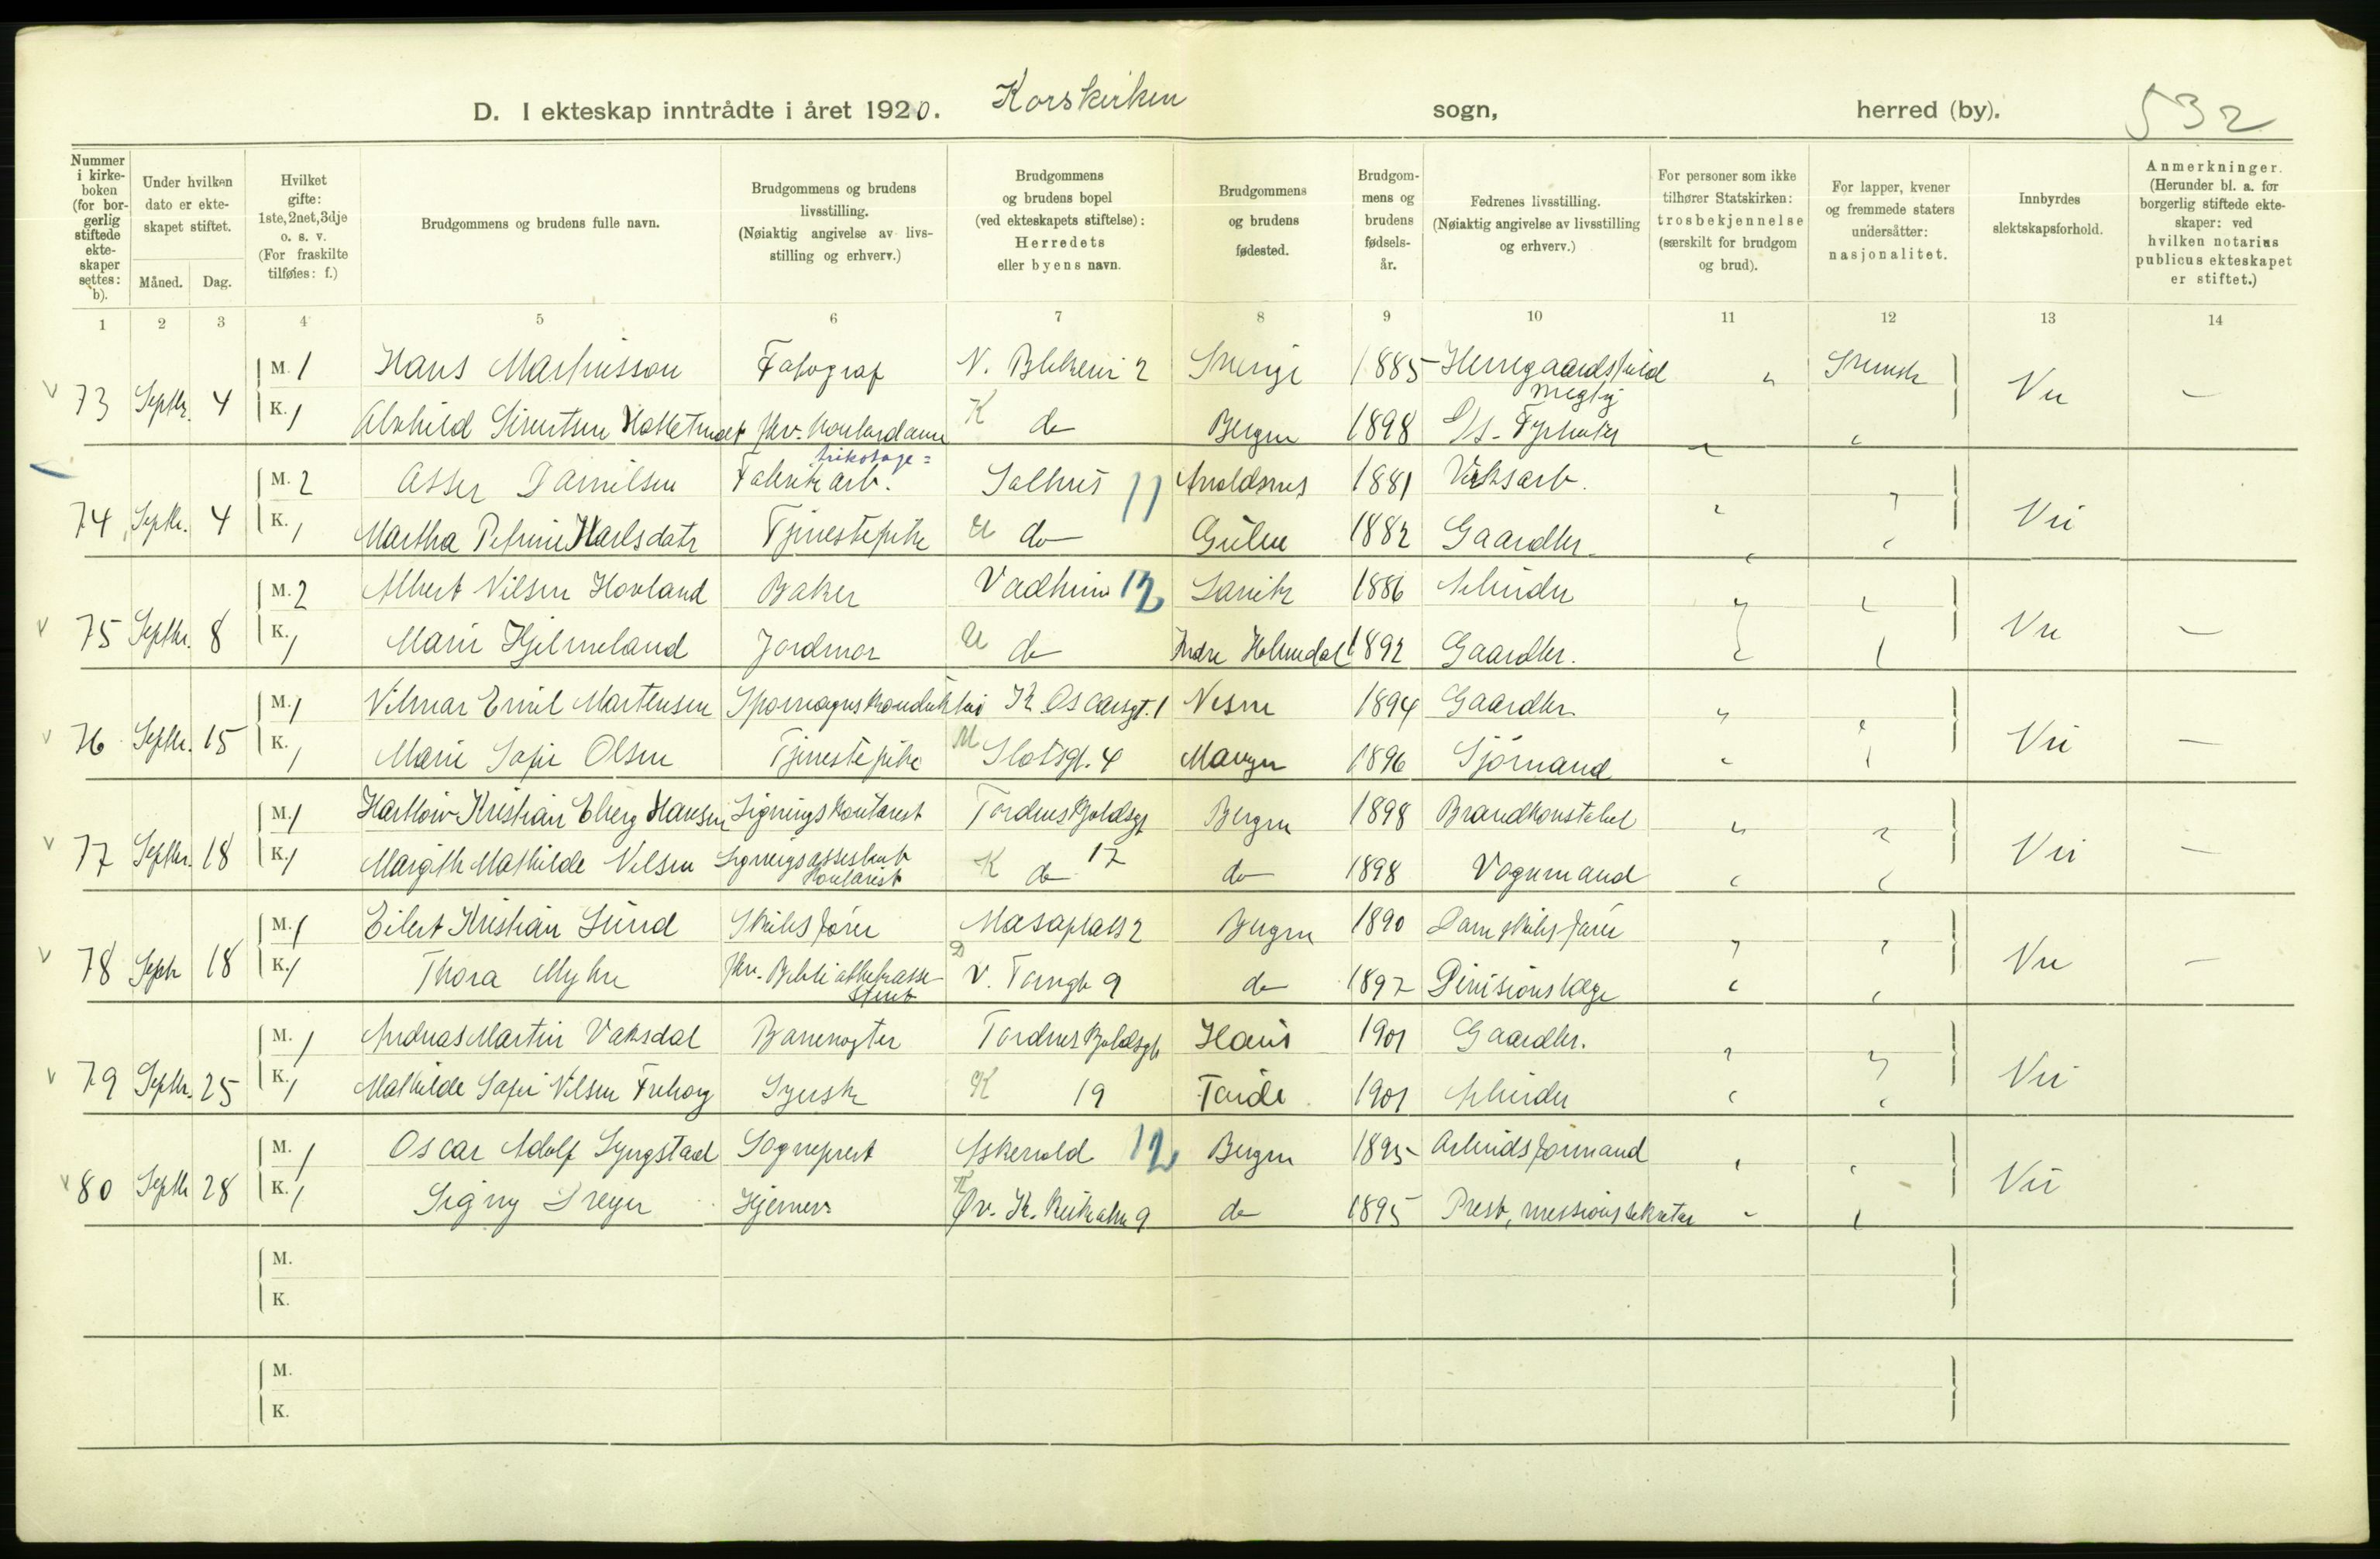 D. I ekteskap inntrådte i året 1920. Korskirken sogn, herred (by). 532
Nummer i kirke-boken (for bor-gerlig stiftede ekte-skaper settes: b).
Under hvilken dato er ekte-skapet stiftet.
Måned. Dag.
Hvilket gifte: 1ste, 2net, 3dje o. s. v. (For fraskilte tilføies: f.)
Brudgommens og brudens fulle navn.
Brudgommens og brudens livsstilling. (Nøiaktig angivelse av livs-stilling og erhverv.)
Brudgommens og brudens bopel (ved ekteskapets stiftelse): Herredets eller byens navn.
Brudgommens og brudens fødested.
Brudgom-mens og brudens fødsels-år.
Fedrenes livsstilling. (Nøiaktig angivelse av livsstilling og erhverv.)
For personer som ikke tilhører Statskirken: trosbekjennelse (særskilt for brudgom og brud).
For lapper, kvener og fremmede staters undersåtter: nasjonalitet.
Innbyrdes slektskapsforhold.
Anmerkninger. (Herunder bl. a. for borgerlig stiftede ekte-skaper: ved hvilken notarius publicus ekteskapet er stiftet.)
1 2 3 4 5 6 7 8 9 10 11 12 13 14
M. 1 Hans Martinsson Fotograf N. Blekevei 2 Sverige 1885 Herregaardsfuld
megtig " Svensk
73 Septbr. 4 Nei —
K. 1 Alvhild Sivertsen K do Bergen 1898
trikotage=
M. 2 Asser Danielsen Fabrikarb. Salhus 11 1881 Verksarb.
74 Septbr. 4 Nei
K. 1 Martha Petrine Karlsdatr Tjenestepike U do Gulen 1882 Gaardbr.
M. 2 Albert Nilsen Hovland Baker Vadheim 12 Lavik 1886 Arbeider
75 Septbr. 8 Nei —
K. 1 Marie Hjelmeland Jordmor U do Indre Holmedal 1892 Gaardbr.
M. 1 Vilmar Emil Martensen Sporvognskonduktør K. Oscarsgt. 1 Nesne 1894 Gaardbr.
76 Septbr. 15 Nei —
K. 1 Marie Sofie Olsen Tjenestepike M Slotsgt. 4 1896 Sjømand
M. 1 Kristian Hansen Ligningskontorist Tordenskjoldsgt Bergen 1898 Brandkonstabel
77 Septbr. 18 17 Nei —
K. 1 Margith Mathilde Nilsen Ligningsassistent
kontorist K do do 1898 Vognmand
M. 1 Eilert Kristian Lund Skibsfører 2 Bergen 1890 Dampskibsfører
78 Septr 18 Nei —
K. 1 Thora Myhre Fhv. Bibliotekasse-
stent V. Torvgt 9 do 1897 Divisionslæge
M. 1 Andreas Martin Vaksdal Banevogter Tordenskjoldsgt Haus 1901 Gaardbr.
79 Septbr. 25 Nei
K. 1 Mathilde Sofie Nilsen Syerske K 19 1901 Arbeider
M. 1 Oscar Adolf Lyngstad Sogneprest Askvold 12 Bergen 1895 Arbeidsformand
80 Septbr 28 Nei
K. 1 Signy Dreyer Hjemmev. Øv. 9 do 1895 Prest, missionssekretær
M.
K.
M.
K.